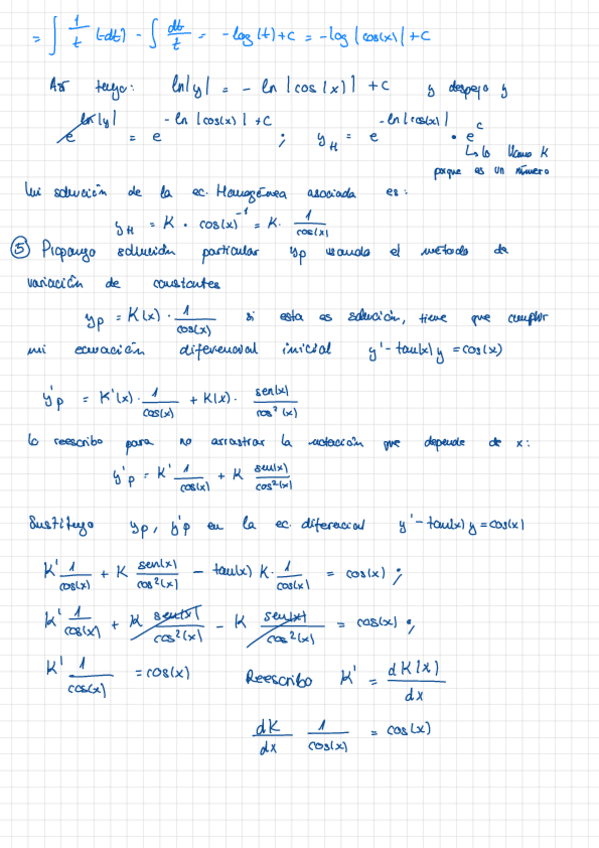 = ∫ 1/t (-dt) - ∫ dt/t = -log(t)+c = -log|cos(x)|+c
Así tengo: ln|y| = - ln |cos(x)| + c y despejo y
e^(ln|y|) = e^(-ln |cos(x)| + c) ; y_H = e^(-ln|cos(x)|) • e^c
↳ lo llamo K
porque es un número
Mi solución de la ec. Homogénea asociada es:
y_H = K • cos(x)^-1 = K · 1/cos(x)
⑤ Propongo solución particular yp usando el método de
variación de constantes
yp = K(x) · 1/cos(x) si esta es solución, tiene que cumplir
mi ecuación diferencial inicial y' - tan(x) y = cos(x)
y'p = K'(x) · 1/cos(x) + K(x) · sen(x)/cos²(x)
lo reescribo para no arrastrar la notación que depende de x:
y'p = K' 1/cos(x) + K sen(x)/cos²(x)
Sustituyo yp, y'p en la ec. diferacial y' - tan(x) y = cos(x)
K' 1/cos(x) + K sen(x)/cos²(x) - tan(x) K · 1/cos(x) = cos(x) ;
K' 1/cos(x) + K sen(x)/cos²(x) - K sen(x)/cos²(x) = cos(x) ;
K' 1/cos(x) = cos(x) Reescribo K' = dK(x)/dx
dK/dx 1/cos(x) = cos(x)